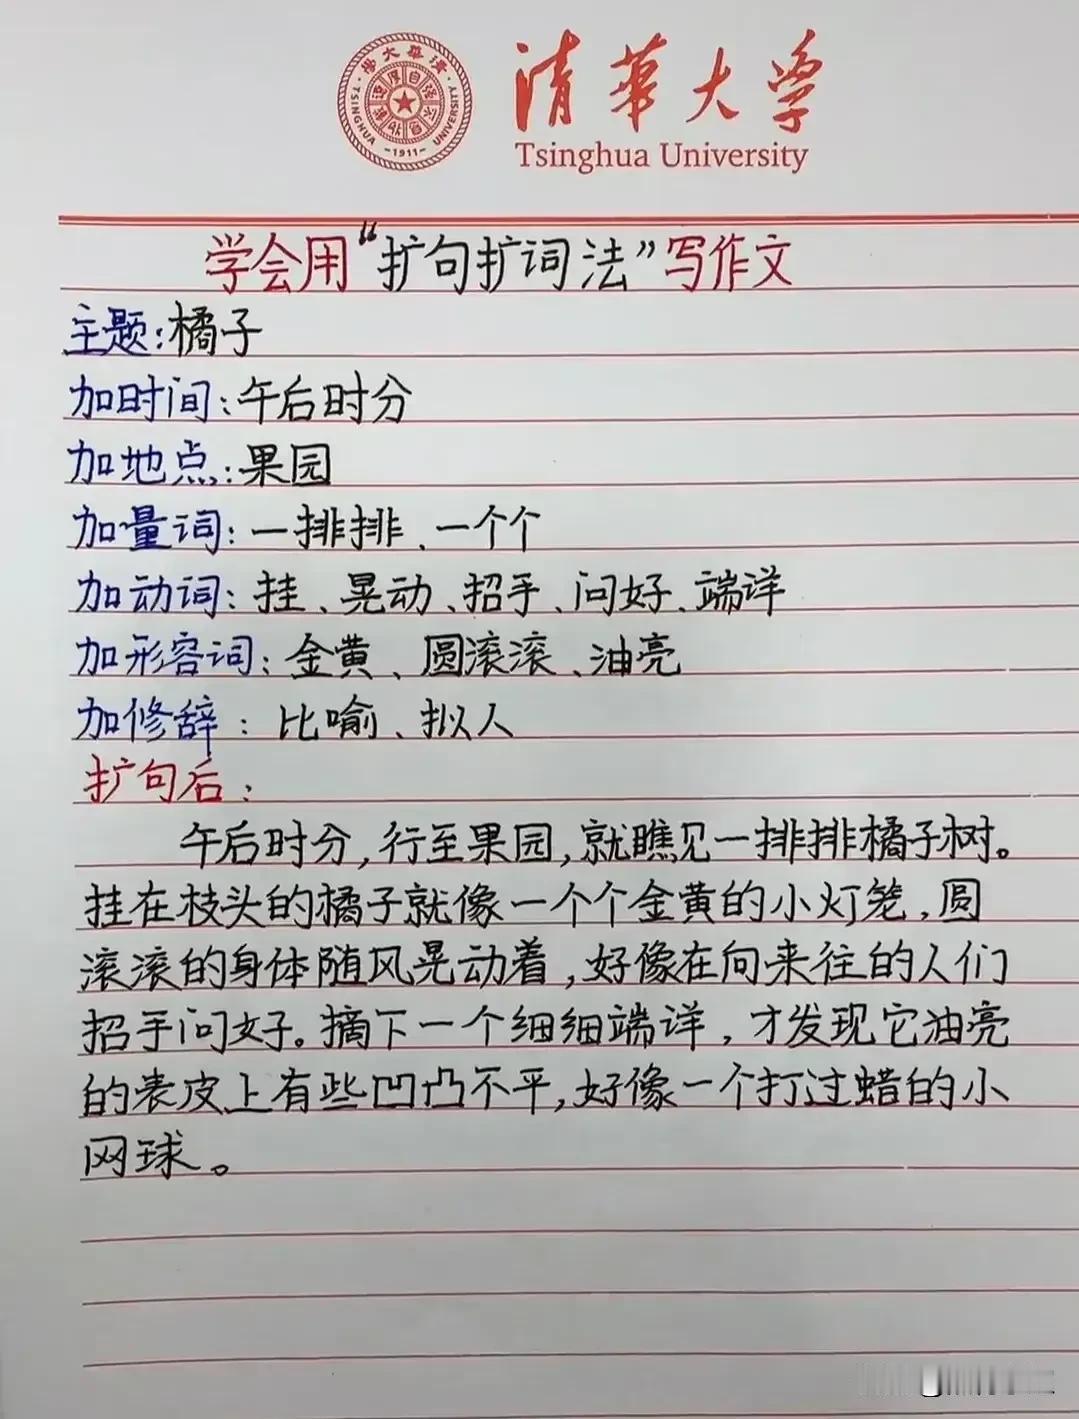 清華大学
Tsinghua University
TSINGHUA UNIVERSITY
-1911-
学会用“扩句扩词法”写作文
主题:橘子
加时间:午后时分
加地点:果园
加量词:一排排、一个个
加动词:挂、晃动、招手、问好、端详
加形容词:金黄、圆滚滚、油亮
加修辞:比喻、拟人
扩句后:
午后时分,行至果园,就瞧见一排排橘子树。
挂在枝头的橘子就像一个个金黄的小灯笼,圆
滚滚的身体随风晃动着,好像在向来往的人们
招手问好。摘下一个细细端详,才发现它油亮
的表皮上有些凹凸不平,好像一个打过蜡的小
网球。